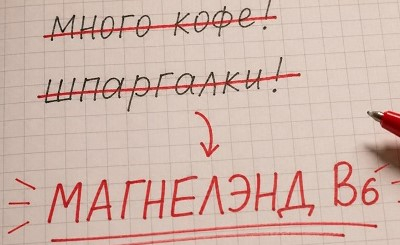 Много кофе!
Шпаргалки!
МАГНЕЛЭНД B6